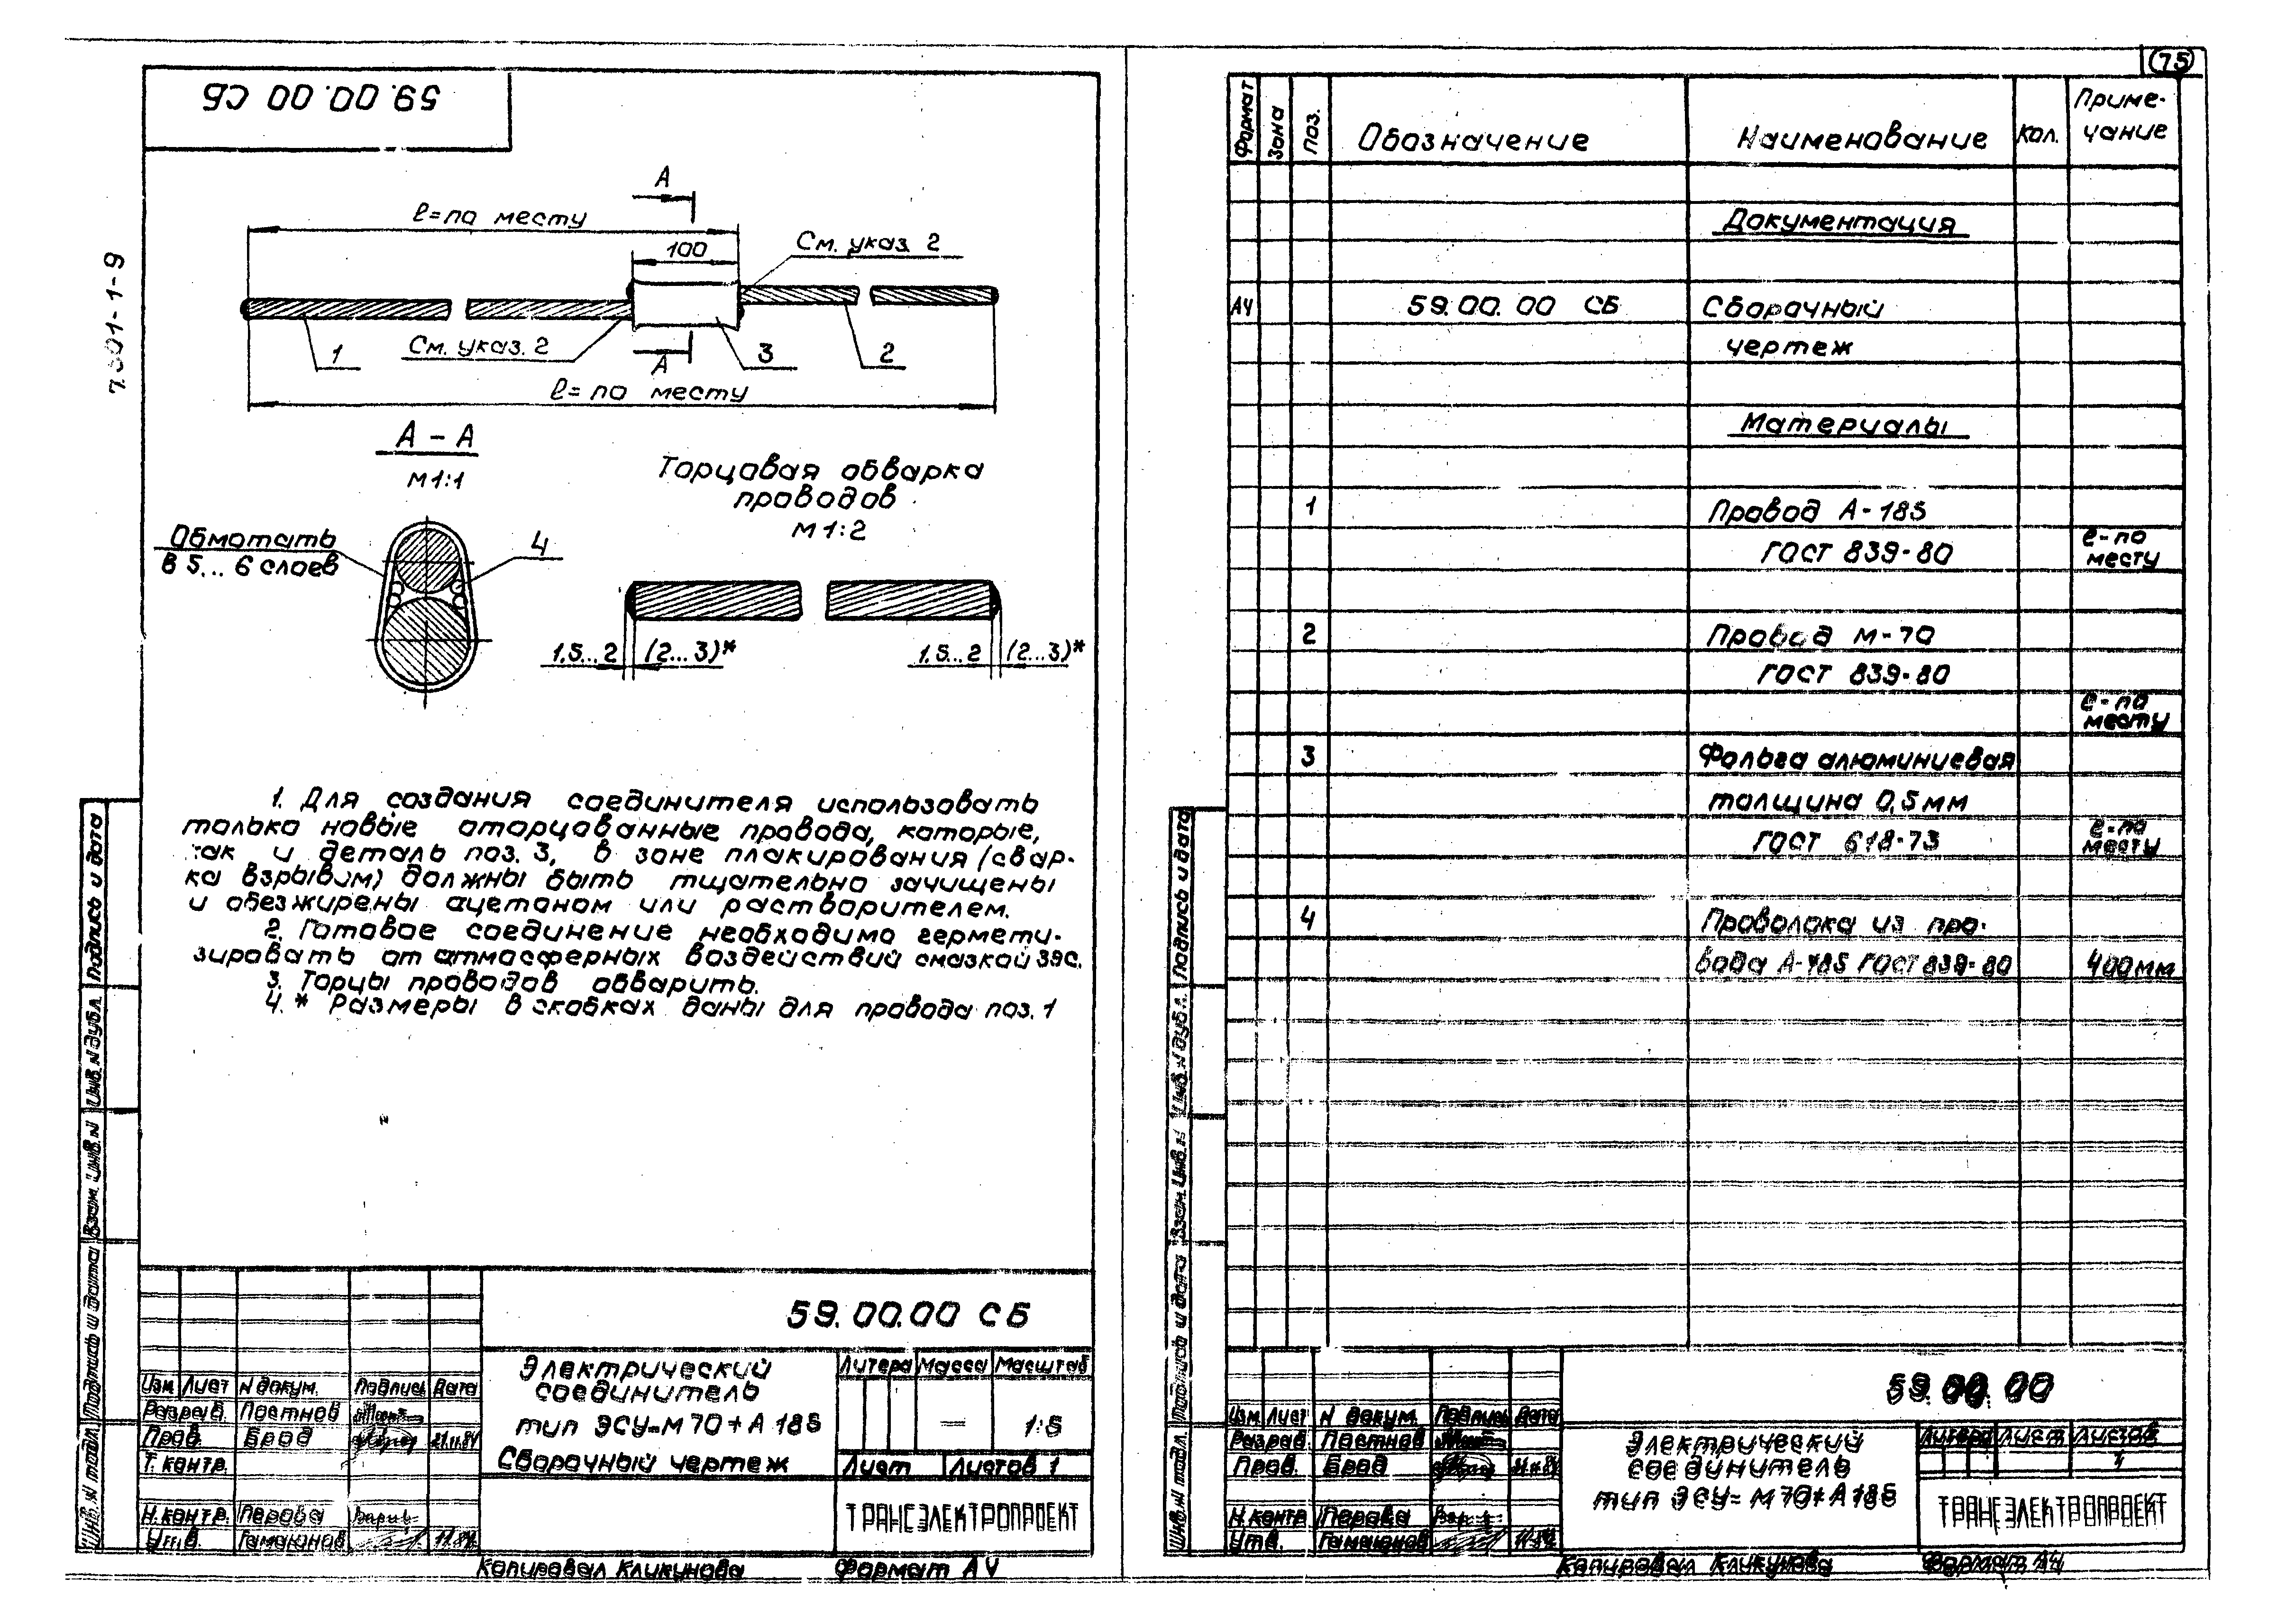 59.00.00 СБ
7501-1-9
А
ℓ=по месту
100
См. указ. 2
1
См. указ. 2
А
3
2
ℓ= по месту
А - А
М1:1
Обмотать
в 5... 6 слоев
4
Торцовая обварка
проводов
М 1:2
1,5...2
(2...3)*
1,5...2
(2...3)*
1. Для создания соединителя использовать
только новые оторцованные провода, которые,
так и деталь поз. 3, в зоне плакирования (свар-
ка взрывом) должны быть тщательно зачищены
и обезжирены ацетоном или растворителем.
2. Готовое соединение необходимо гермети-
зировать от атмосферных воздействий смазкой ЗЭС.
3. Торцы проводов обварить.
4. * Размеры в скобках даны для провода поз. 1
Инв. N подл.
Подпись и дата
Взам. Инв. N
Инв. N дубл.
Подпись и дата
59.00.00 СБ
Изм Лист N докум. Подпись Дата
Разраб. Постнов
Пров. Брод 21.11.84
Т. контр.
Н. контр. Перова
Утв. Гамаюнов 11.84
Электрический
соединитель
тип ЭСУ-М70+А185
Сборочный чертеж
Литера Масса Масштаб
— 1:5
Лист Листов 1
ТРАНСЭЛЕКТРОПРОЕКТ
Копировал Кликунова Формат А4
75
Формат Зона Поз. Обозначение Наименование Кол. Приме-
чание
Документация
А4 59.00.00 СБ Сборочный
чертеж
Материалы
1 Провод А-185
ГОСТ 839-80 ℓ-по
месту
2 Провод М-70
ГОСТ 839-80
ℓ-по
месту
3 Фольга алюминиевая
толщина 0,5мм
ГОСТ 618-73 ℓ-по
месту
4 Проволока из про-
вода А-185 ГОСТ 839-80 400мм
Инв. N подл.
Подпись и дата
Взам. Инв. N
Инв. N дубл.
Подпись и дата
59.00.00
Изм Лист N докум. Подпись Дата
Разраб. Постнов
Пров. Брод
Н. контр Перова
Утв. Гамаюнов 11.84
Электрический
соединитель
тип ЭСУ-М70+А185
Литера Лист Листов
1
ТРАНСЭЛЕКТРОПРОЕКТ
Копировал Кликунова Формат А4